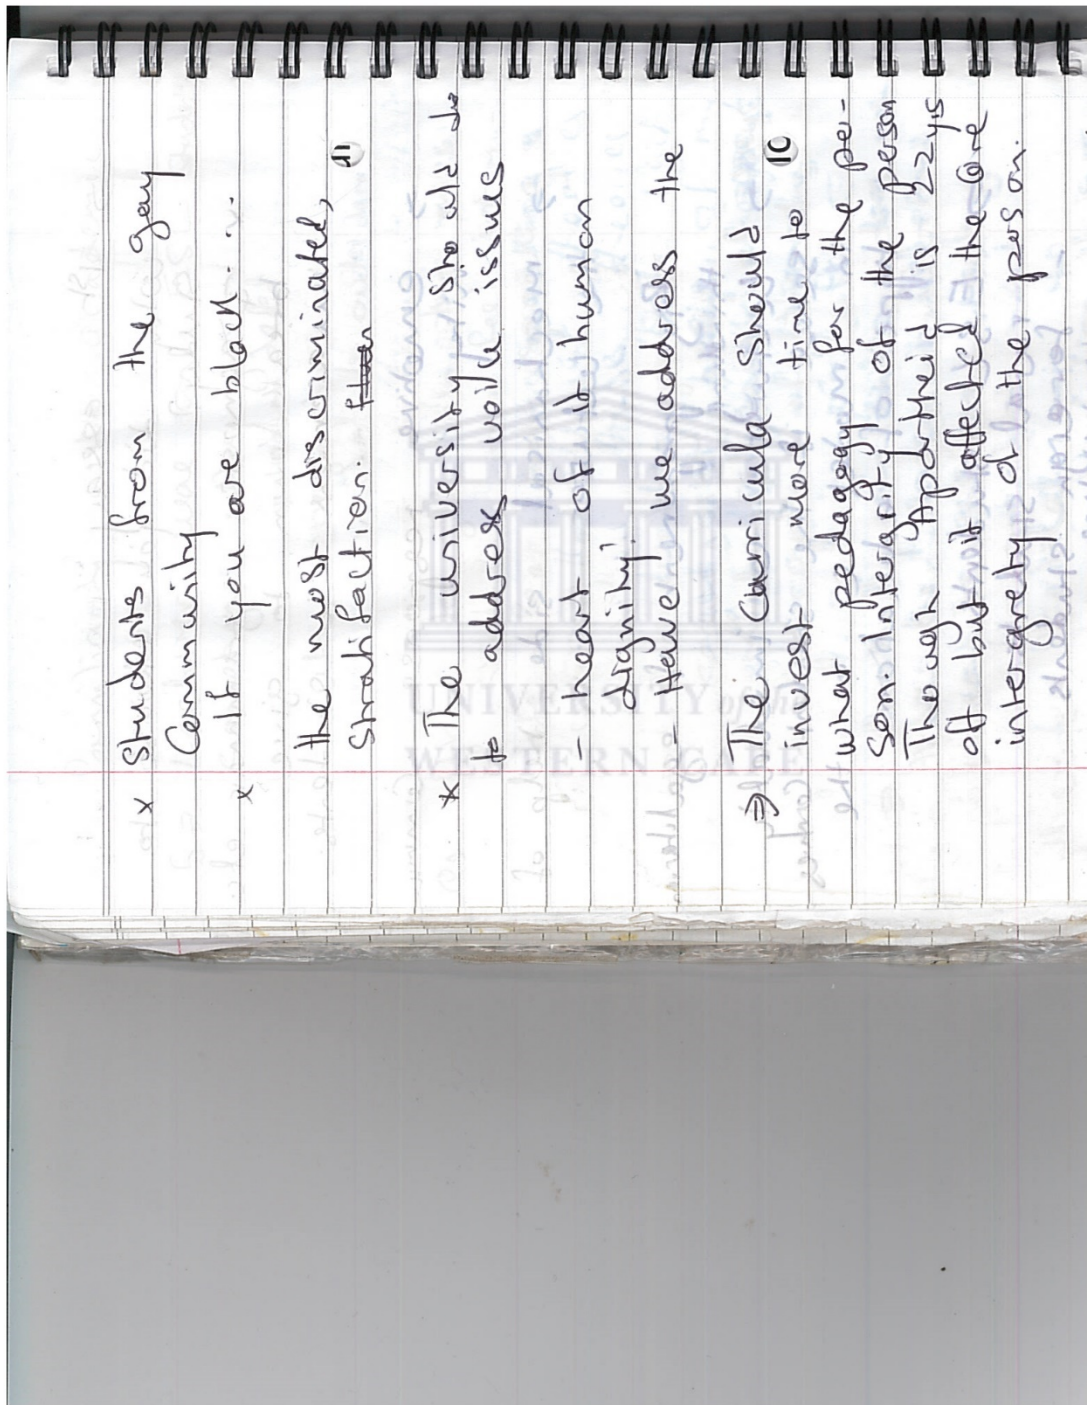 x Students from the gay
Community
x If you are black.....
the most discriminated,
Stratifaction. 11
x The university should do
to address voice issues
- heart of it human
dignity!
- Have we address the
⇒ The Curricula should
invest more time to 10
what pedagogy for the per-
son. Intergrity of the person
Though Apartheid is 22 ys
off but it affected the core
intergrety of the person.
UNIVERSITY of the
WESTERN CAPE